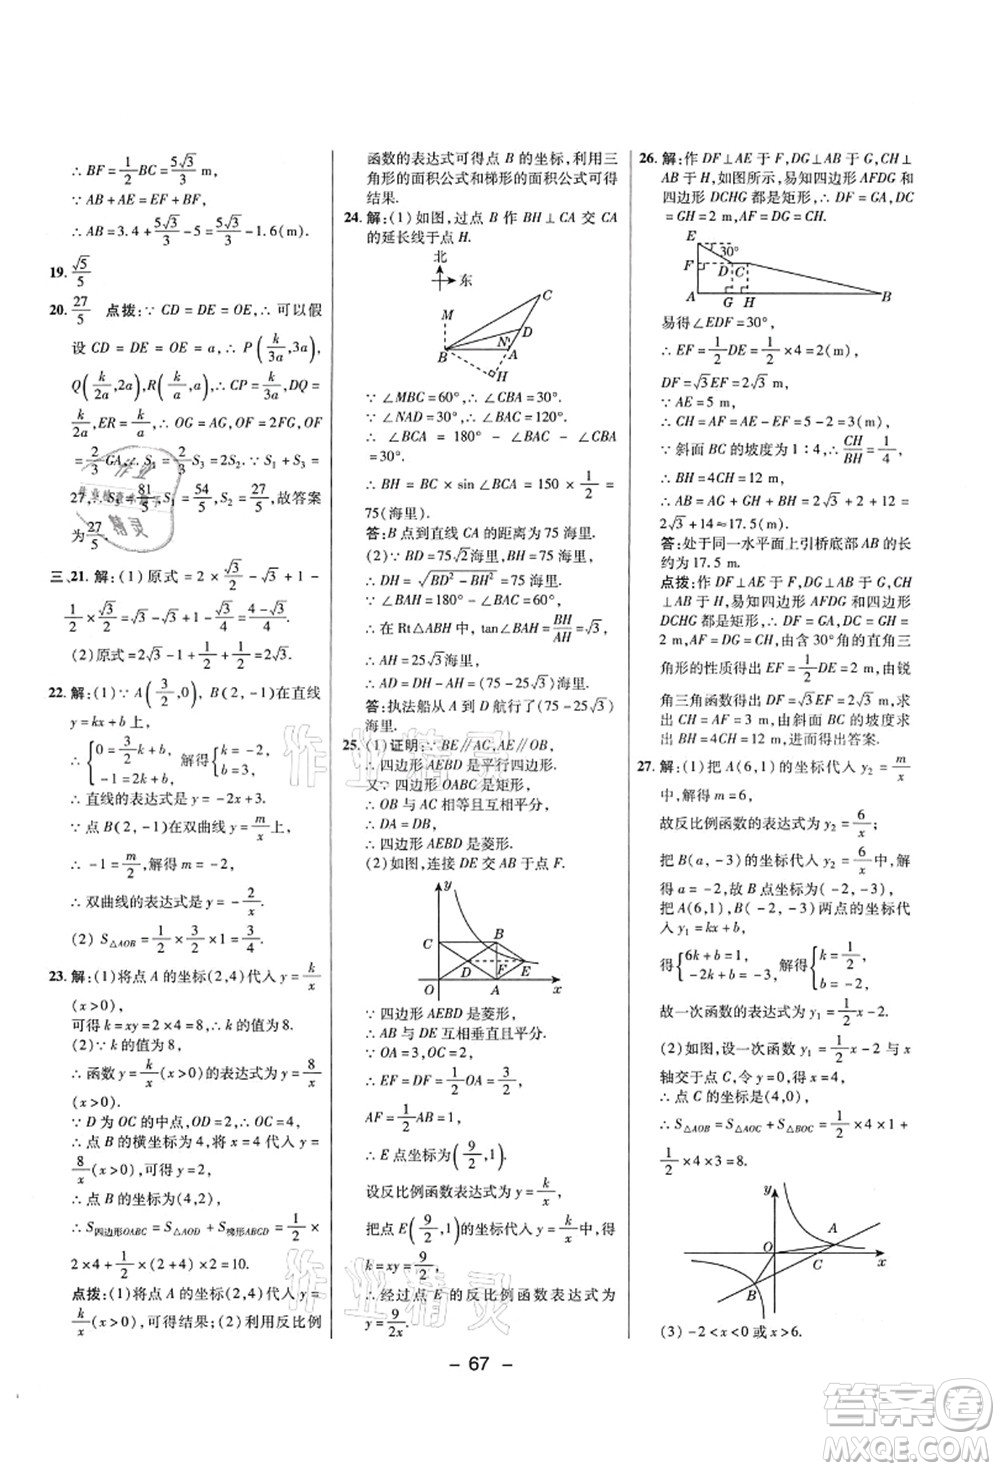 ∴ BF = 1/2 BC = 5√3/3 m,
∵ AB + AE = EF + BF,
∴ AB = 3.4 + 5√3/3 - 5 = 5√3/3 - 1.6(m).
19. √5/5
20. 27/5 点拨:∵ CD = DE = OE,∴ 可以假
设 CD = DE = OE = a,∴ P(k/3a,3a),
Q(k/2a,2a),R(k/a,a),∴ CP = k/3a,DQ =
k/2a,ER = k/a,∴ OG = AG,OF = 2FG,OF
= 2/3 GA,∴ S1 = 2/3 S3 = 2S2,∵ S1 + S3 =
27,∴ S3 = 81/5,S1 = 54/5,S2 = 27/5,故答案
为 27/5.
三、21. 解:(1)原式 = 2 × √3/2 - √3 + 1 -
1/2 × √2/2 = √3 - √3 + 1 - √2/4 = (4 - √2)/4.
(2)原式 = 2√3 - 1 + √3/3 × √3 = 2√3.
22. 解:(1)∵ A(3/2,0),B(2,-1)在直线
y = kx + b 上,
∴ {0 = 3/2 k + b, -1 = 2k + b, 解得 {k = -2, b = 3,
∴ 直线的表达式为 y = -2x + 3;
∵ 点 B(2,-1)在双曲线 y = m/x 上,
∴ -1 = m/2,解得 m = -2,
∴ 双曲线的表达式是 y = -2/x.
(2) S△AOB = 1/2 × 3/2 × 1 = 3/4.
23. 解:(1)将点 A 的坐标(2,4)代入 y = k/x
(x > 0),
可得 k = xy = 2 × 4 = 8,∴ k 的值为 8.
(2)∵ k 的值为 8,
∴ 函数 y = k/x (x > 0)的表达式为 y = 8/x
(x > 0).
∵ D 为 OC 的中点,OD = 2,∴ OC = 4.
∴ 点 B 的横坐标为 4,将 x = 4 代入 y =
8/x (x > 0),可得 y = 2,
∴ 点 B 的坐标为(4,2),
∴ S四边形OABC = S△AOD + S梯形ABCD = 1/2 ×
2 × 4 + 1/2 × (2 + 4) × 2 = 10.
点拨:(1)将点 A 的坐标(2,4)代入 y =
k/x (x > 0),可得结果;(2)利用反比例
函数的表达式可得点 B 的坐标,利用三
角形的面积公式和梯形的面积公式可得
结果.
24. 解:(1)如图,过点 B 作 BH⊥CA 交 CA
的延长线于点 H.
北
东
C
M
D
N
B
A
H
∵ ∠MBC = 60°,∴ ∠CBA = 30°.
∵ ∠NAD = 30°,∴ ∠BAC = 120°.
∴ ∠BCA = 180° - ∠BAC - ∠CBA
= 30°.
∴ BH = BC × sin∠BCA = 150 × 1/2 =
75(海里).
答:B 点到直线 CA 的距离为 75 海里.
(2)∵ BD = 75√2海里,BH = 75 海里,
∴ DH = √(BD² - BH²) = 75 海里.
∵ ∠BAH = 180° - ∠BAC = 60°,
∴ 在 Rt△ABH 中,tan∠BAH = BH/AH = √3,
∴ AH = 25√3海里.
∴ AD = DH - AH = (75 - 25√3)海里.
答:执法船从 A 到 D 航行了(75 - 25√3)
海里.
25. (1)证明:∵ BE∥AC,AE∥OB,
∴ 四边形 AEBD 是平行四边形.
又∵ 四边形 OABC 是矩形,
∴ OB 与 AC 相等且互相平分,
∴ DA = DB.
∴ 四边形 AEBD 是菱形.
(2)如图,连接 DE 交 AB 于点 F.
y
C
B
D
F
E
O
A
x
∵ 四边形 AEBD 是菱形,
∴ AB 与 DE 互相垂直且平分.
∵ OA = 3,OC = 2,
∴ EF = DF = 1/2 OA = 3/2,
AF = 1/2 AB = 1.
∴ E 点坐标为(9/2,1).
设反比例函数表达式为 y = k/x,
把点 E(9/2,1)的坐标代入 y = k/x 得,
k = xy = 9/2,
∴ 经过点 E 的反比例函数表达式为
y = 9/2x.
26. 解:作 DF⊥AE 于 F,DG⊥AB 于 G,CH
⊥AB 于 H,如图所示,易知四边形 AFDG 和
四边形 DCHG 都是矩形,∴ DF = GA,DC
= GH = 2 m,AF = DG = CH.
E
30°
F
D
C
A
G
H
B
易得∠EDF = 30°,
∴ EF = 1/2 DE = 1/2 × 4 = 2(m),
DF = √3EF = 2√3 m,
∵ AE = 5 m,
∴ CH = AF = AE - EF = 5 - 2 = 3(m),
∵ 斜面 BC 的坡度为 1:4,∴ CH/BH = 1/4,
∴ BH = 4CH = 12 m,
∴ AB = AG + GH + BH = 2√3 + 2 + 12 =
2√3 + 14 ≈ 17.5(m).
答:处于同一水平面上引桥底部 AB 的长
约为 17.5 m.
点拨:作 DF⊥AE 于 F,DG⊥AB 于 G,CH
⊥AB 于 H,易知四边形 AFDG 和四边形
DCHG 都是矩形,∴ DF = GA,DC = GH =
2 m,AF = DG = CH,由含 30°角的直角三
角形的性质得出 EF = 1/2 DE = 2 m,由锐
角三角函数得 DF = √3EF = 2√3 m,求出
CH = AF = 3 m,由斜面 BC 的坡度求出
BH = 4CH = 12 m,进而得出答案.
27. 解:(1)把 A(6,1)的坐标代入 y2 = m/x
中,解得 m = 6,
故反比例函数的表达式为 y2 = 6/x;
把 B(a,-3)的坐标代入 y2 = 6/x 中,解
得 a = -2,故 B 点坐标为(-2,-3),
把 A(6,1),B(-2,-3)两点的坐标代
入 y1 = kx + b,
得{6k + b = 1, -2k + b = -3, 解得{k = 1/2, b = -2,
故一次函数的表达式为 y1 = 1/2 x - 2.
(2)如图,设一次函数 y1 = 1/2 x - 2 与 x
轴交于点 C,令 y = 0,得 x = 4.
∴ 点 C 的坐标为(4,0),
∴ S△AOB = S△AOC + S△BOC = 1/2 × 4 × 1 +
1/2 × 4 × 3 = 8.
y
A
O
C
x
B
(3) -2 < x < 0 或 x > 6.
- 67 -
作业精灵
作业精灵
作业
精灵
答案圈
MXQE.COM